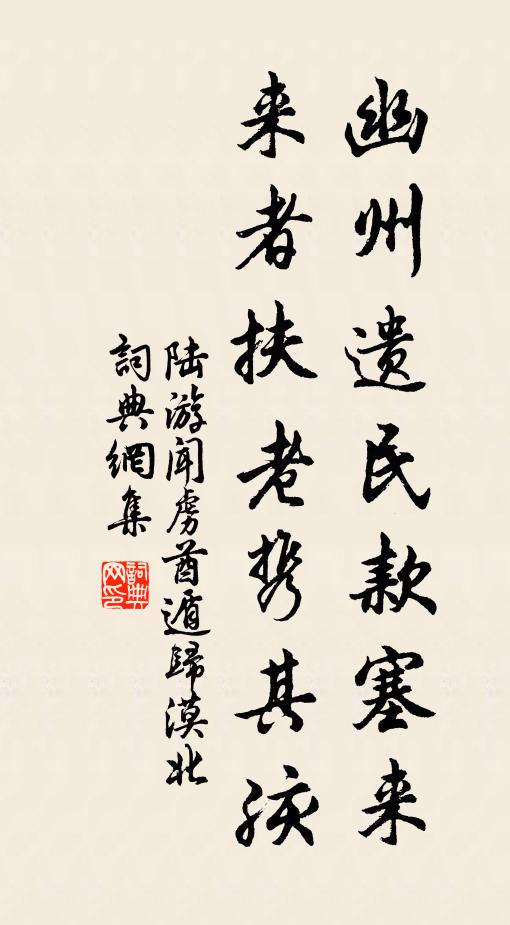 幽州遗民款塞来
来者扶老携其孩
陆游闻虏酋遁歸漠北
詞典網集
詞典网印